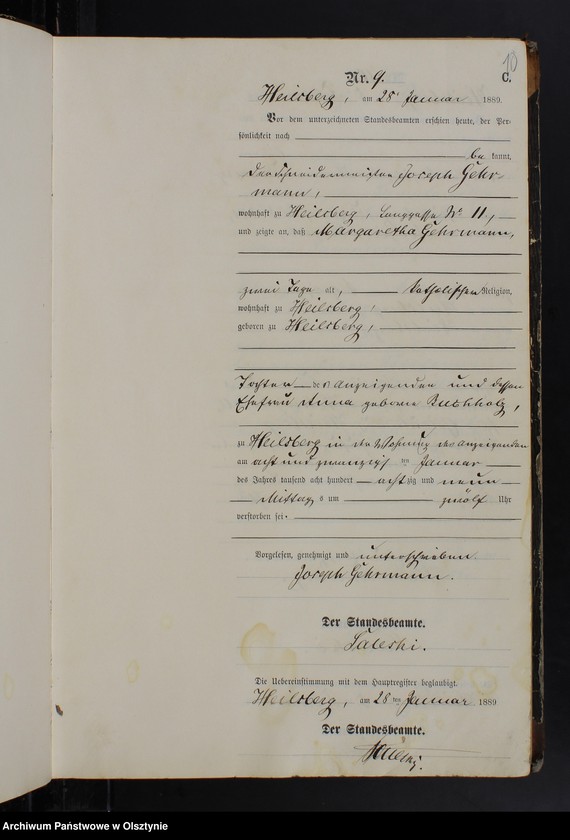 10
Nr. 9. C.
Heilsberg, am 28 Januar 1889.
Vor dem unterzeichneten Standesbeamten erschien heute, der Per-
sönlichkeit nach
be kannt,
der Schneidermeister Joseph Gehr-
mann,
wohnhaft zu Heilsberg, Langgasse No 11,
und zeigte an, daß Margaretha Gehrmann,
zwei Tage alt, katholischer Religion,
wohnhaft zu Heilsberg,
geboren zu Heilsberg,
Tochter des Anzeigenden und dessen
Ehefrau Anna geboren Buchholz,
zu Heilsberg in der Wohnung des Anzeigenden
am acht und zwanzigsten Januar
des Jahres tausend acht hundert achtzig und neun
Mittags um zwölf Uhr
verstorben sei.
Vorgelesen, genehmigt und unterschrieben
Joseph Gehrmann.
Der Standesbeamte.
Die Uebereinstimmung mit dem Hauptregister beglaubigt.
Heilsberg, am 28ten Januar 1889
Der Standesbeamte.
Archiwum Państwowe w Olsztynie